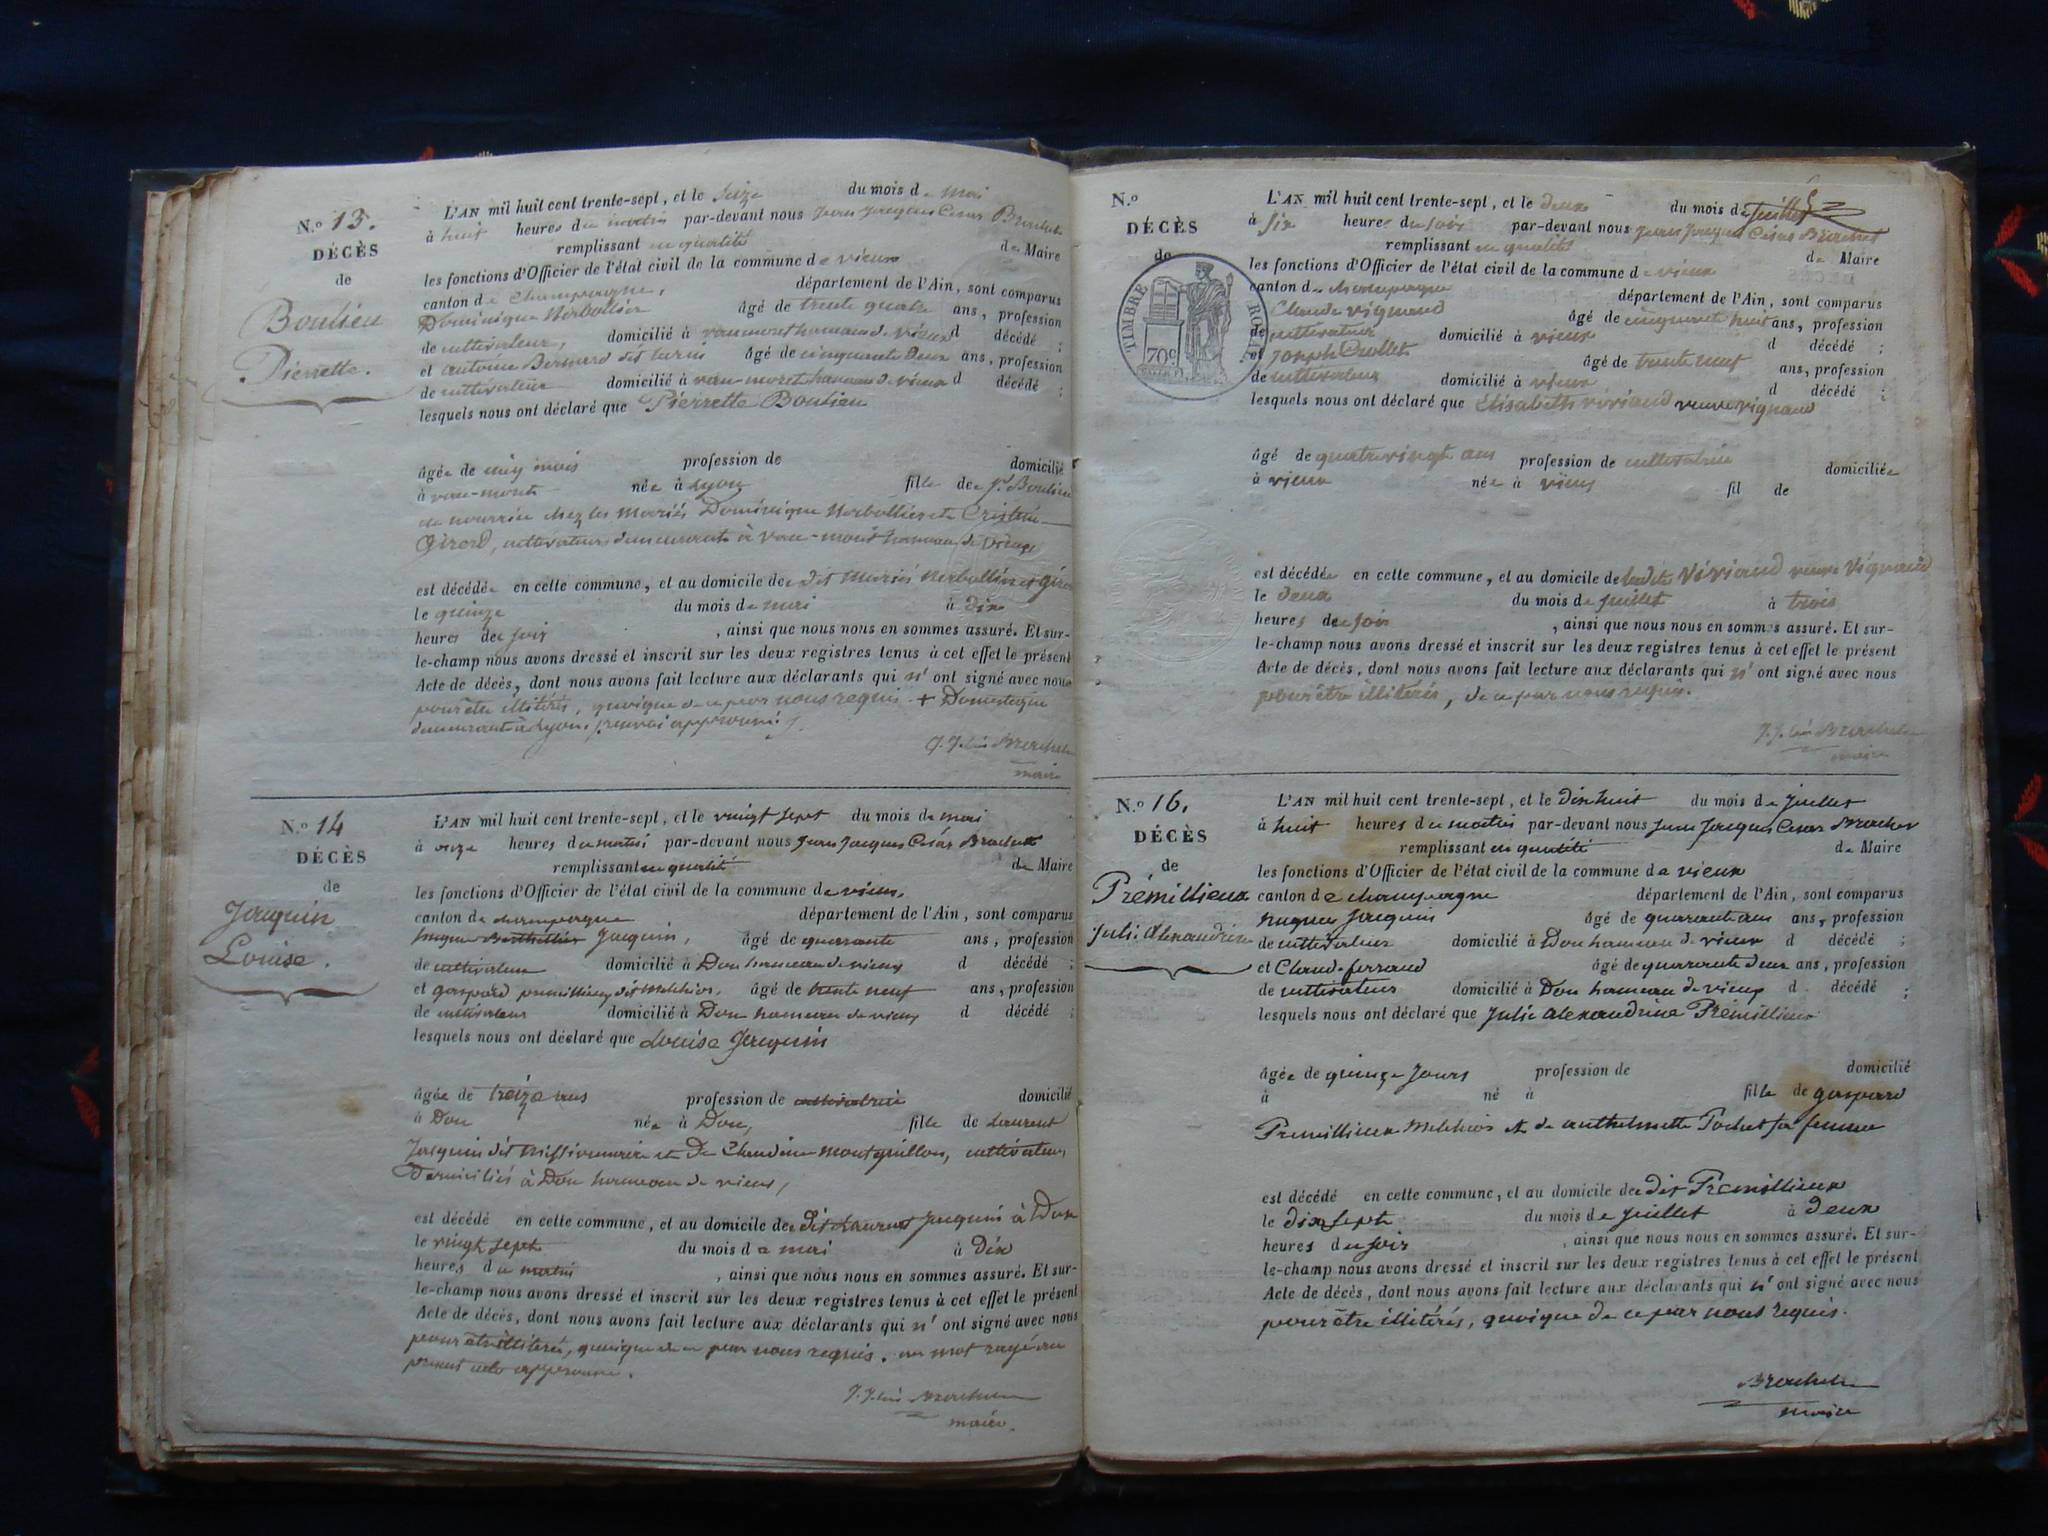 N.º 13.
DÉCÈS
de
Boulieu
Pierrette.
L'AN mil huit cent trente-sept, et le seize du mois de mai
à huit heures du matin par-devant nous jean jacques César Brachet
remplissant en qualité de Maire
les fonctions d'Officier de l'état civil de la commune de vieux
canton de champagne, département de l'Ain, sont comparus
Dominique âgé de trente quatre ans, profession
de cultivateur, domicilié à vau-moret hameau de vieux d décédé ;
et antoine Bernard dit âgé de cinquante deux ans, profession
de cultivateur domicilié à vau-moret hameau de vieux d décédé ;
lesquels nous ont déclaré que Pierrette Boulieu
âgée de cinq mois profession de domicilié
à née à Lyon fille de Boulieu
en nourrice chez les mariés Dominique et
Girord, cultivateurs demeurants à hameau de vieux
est décédée en cette commune, et au domicile des dits mariés
le quinze du mois de mai à dix
heures de soir, ainsi que nous nous en sommes assuré. Et sur-
le-champ nous avons dressé et inscrit sur les deux registres tenus à cet effet le présent
Acte de décès, dont nous avons fait lecture aux déclarants qui n' ont signé avec nous
pour être illitérés, quoique de ce par nous requis + Domestique
demeurant à Lyon, renvoi approuvé
Brachet
maire
N.º 14
DÉCÈS
de
Jacquin
Louise.
L'AN mil huit cent trente-sept, et le vingt sept du mois de mai
à onze heures du matin par-devant nous jean jacques César Brachet
remplissant en qualité de Maire
les fonctions d'Officier de l'état civil de la commune de vieux,
canton de champagne département de l'Ain, sont comparus
Jacquin, âgé de quarante ans, profession
de cultivateur domicilié à Don hameau de vieux d décédé ;
et gaspard premillieux dit Melchior, âgé de trente neuf ans, profession
de cultivateur domicilié à Don hameau de vieux d décédé ;
lesquels nous ont déclaré que Louise Jacquin
âgée de treize ans profession de cultivatrice domicilié
à Don née à Don, fille de Laurent
Jacquin dit Missionnaire et de Claudine Montguillon, cultivateurs
Domiciliés à Don hameau de vieux,
est décédé en cette commune, et au domicile de dit Laurent Jacquin à Don
le vingt sept du mois de mai à Dix
heures du matin, ainsi que nous nous en sommes assuré. Et sur-
le-champ nous avons dressé et inscrit sur les deux registres tenus à cet effet le présent
Acte de décès, dont nous avons fait lecture aux déclarants qui n' ont signé avec nous
pour être illitérés, quoique de ce par nous requis. un mot rayé au
présent acte approuvé.
Brachet
maire.
N.º
DÉCÈS
de
TIMBRE ROYAL
70c
L'AN mil huit cent trente-sept, et le deux du mois de juillet
à six heures du soir par-devant nous jean jacques César Brachet
remplissant en qualité de Maire
les fonctions d'Officier de l'état civil de la commune de vieux
canton de champagne département de l'Ain, sont comparus
Claude vignaud âgé de cinquante huit ans, profession
de cultivateur domicilié à vieux d décédé ;
et Joseph âgé de trente neuf ans, profession
de cultivateur domicilié à vieux d décédé ;
lesquels nous ont déclaré que Elisabeth viviand veuve vignaud
âgé de quatre vingt ans profession de cultivatrice domiciliée
à vieux née à vieux fil de
est décédée en cette commune, et au domicile de ladite Viviand veuve Vignaud
le deux du mois de juillet à trois
heures de soir, ainsi que nous nous en sommes assuré. Et sur-
le-champ nous avons dressé et inscrit sur les deux registres tenus à cet effet le présent
Acte de décès, dont nous avons fait lecture aux déclarants qui n' ont signé avec nous
pour être illitérés, de ce par nous requis.
Brachet
maire
N.º 16.
DÉCÈS
de
Prémillieux
Julie Alexandrine
L'AN mil huit cent trente-sept, et le dix huit du mois de juillet
à huit heures du matin par-devant nous jean jacques César Brachet
remplissant en qualité de Maire
les fonctions d'Officier de l'état civil de la commune de vieux
canton de champagne département de l'Ain, sont comparus
Jacquin âgé de quarante ans ans, profession
de cultivateur domicilié à Don hameau de vieux d décédé ;
et Claude ferraud âgé de quarante deux ans, profession
de cultivateur domicilié à Don hameau de vieux d décédé ;
lesquels nous ont déclaré que Julie Alexandrine Prémillieux
âgée de quinze jours profession de domicilié
à né à fille de gaspard
Premillieux Melchior et de anthelmette Pochet sa femme
est décédé en cette commune, et au domicile de dit Premillieux
le dix sept du mois de juillet à deux
heures du soir, ainsi que nous nous en sommes assuré. Et sur-
le-champ nous avons dressé et inscrit sur les deux registres tenus à cet effet le présent
Acte de décès, dont nous avons fait lecture aux déclarants qui n' ont signé avec nous
pour être illitérés, quoique de ce par nous requis.
Brachet
maire